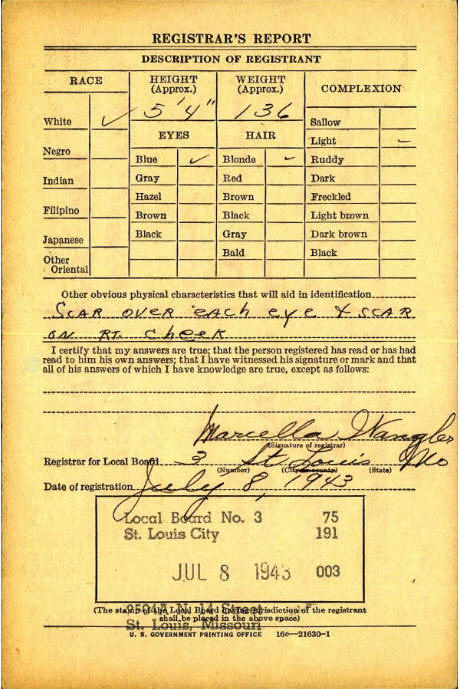 REGISTRAR'S REPORT
DESCRIPTION OF REGISTRANT
RACE
HEIGHT
(Approx.)
WEIGHT
(Approx.)
COMPLEXION
5'4"
136
White ✓
Negro
Indian
Filipino
Japanese
Other
Oriental
EYES
Blue ✓
Gray
Hazel
Brown
Black
HAIR
Blonde ✓
Red
Brown
Black
Gray
Bald
Sallow
Light ✓
Ruddy
Dark
Freckled
Light brown
Dark brown
Black
Other obvious physical characteristics that will aid in identification
SCAR OVER each eye & SCAR
ON RT. cheek
I certify that my answers are true; that the person registered has read or has had
read to him his own answers; that I have witnessed his signature or mark and that
all of his answers of which I have knowledge are true, except as follows:
Marcella Wangler
(Signature of registrar)
Registrar for Local Board 3 St Louis Mo
(Number) (City or county) (State)
Date of registration July 8, 1943
Local Board No. 3 75
St. Louis City 191
JUL 8 1943 003
N. 14 Street
(The stamp of the Local Board having jurisdiction of the registrant
shall be placed in the above space)
St. Louis, Missouri
U. S. GOVERNMENT PRINTING OFFICE 16—21630-1